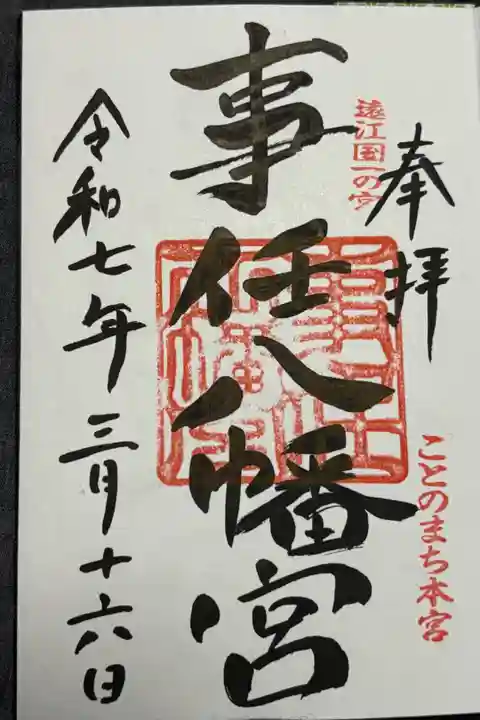 奉拝
遠江国一の宮
ことのまち本宮
事任八幡宮
令和七年三月十六日